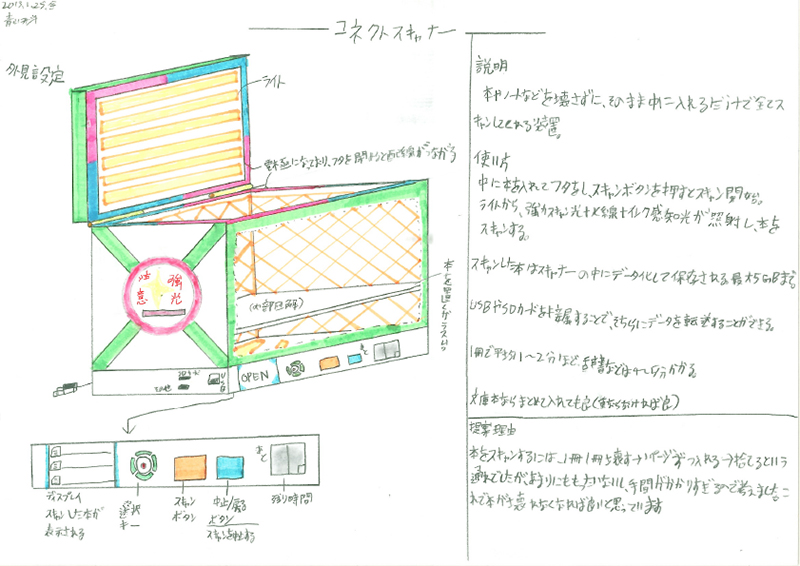 2015.1.25.
コネクトスキャナー
外見設定
ライト
電極になっており、フタを閉めると回線がつながる
注意
強光
(内部図解)
本を置くガラス
OPEN
USB
その他
あと
ディスプレイ
スキャンした本が
表示される
選択
キー
スキャン
ボタン
中止/戻る
ボタン
スキャンを中止する
あと
残り時間
説明
本やノートなどを壊さずに、そのまま中に入れるだけで全てス
キャンしてくれる装置。
使い方
中に本を入れてフタをし、スキャンボタンを押すとスキャン開始。
ライトから、強力スキャン光+X線+インク感知光が照射し、本を
スキャンする。
スキャンした本はスキャナーの中にデータ化して保存される。最大5GBまで
USBやSDカードを接続することで、そちらにデータを転送することができる。
1冊で平均1〜2分など、辞書などは4〜5分かかる
文庫本ならまとめて入れても良(重ならなければ良)
提案理由
本をスキャンするには、1冊1冊壊す→1ページずつ入れる→捨てるという
流れでしたが、あまりにももったいないし、手間がかかりすぎるので考えました。こ
れで本が壊れなくなれば良いと思っています